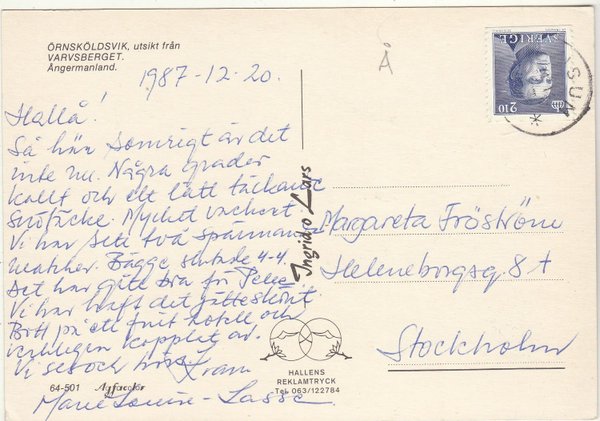 ÖRNSKÖLDSVIK, utsikt från
VARVSBERGET.
Ångermanland.
1987-12-20.
Hallå!
Så här somrigt är det
inte nu. Några grader
kallt och ett lätt täckande
snötäcke. Mycket vackert
Vi har sett två spännande
matcher. Bägge slutade 4-4
Det har gått bra för Pelle.
Vi har haft det jätteskönt
Bott på ett fint hotell och
verkligen kopplat av.
Vi ses och hörs. Kram
Marie Louise - Lasse
64-501 Agfacolor
Å
Ingrid o Lars
SVERIGE
210
SUM
Margareta Fröström
Heleneborgsg. 8 t
Stockholm
HALLENS
REKLAMTRYCK
Tel. 063/122784